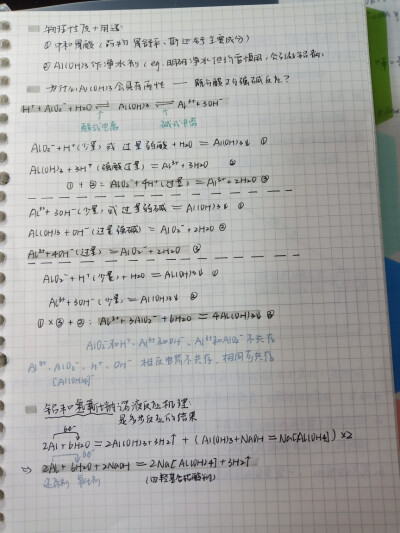 物理性质+用途:
① 中和胃酸(药物胃舒平、斯达舒主要成分)
② Al(OH)3作净水剂
为什么Al(OH)3会具有两性 — 既与酸又与强碱反应?
H⁺+AlO₂⁻+H₂O ⇌ Al(OH)₃ ⇌ Al³⁺+3OH⁻
酸式电离 碱式电离
AlO₂⁻+H⁺(少量)或过量弱酸+H₂O=Al(OH)₃↓ ①
Al(OH)₃+3H⁺(强酸过量)=Al³⁺+3H₂O ②
①+②=AlO₂⁻+4H⁺(过量)=Al³⁺+2H₂O ③
Al³⁺+3OH⁻(少量)或过量弱碱=Al(OH)₃↓ ①
Al(OH)₃+OH⁻(过量强碱)=AlO₂⁻+2H₂O ②
Al³⁺+4OH⁻(过量)=AlO₂⁻+2H₂O ③
AlO₂⁻+H⁺(少量)+H₂O=Al(OH)₃↓ ①
Al³⁺+3OH⁻(少量)=Al(OH)₃↓ ②
①×③+②: Al³⁺+3AlO₂⁻+6H₂O=4Al(OH)₃↓ ③
AlO₂⁻和H⁺、Al³⁺和OH⁻、Al³⁺和AlO₂⁻不共存
Al³⁺、AlO₂⁻、H⁺、OH⁻ 相反电荷不共存,相同可共存
[Al(OH)4]⁻
铝和氢氧化钠溶液反应机理:
是多步反应的结果
6e⁻
2Al+6H₂O=2Al(OH)₃+3H₂↑ + (Al(OH)₃+NaOH=Na[Al(OH)4])×2
6e⁻
⇒ 2Al+6H₂O+2NaOH=2Na[Al(OH)4]+3H₂↑
还原剂 氧化剂 (四羟基合铝酸钠)